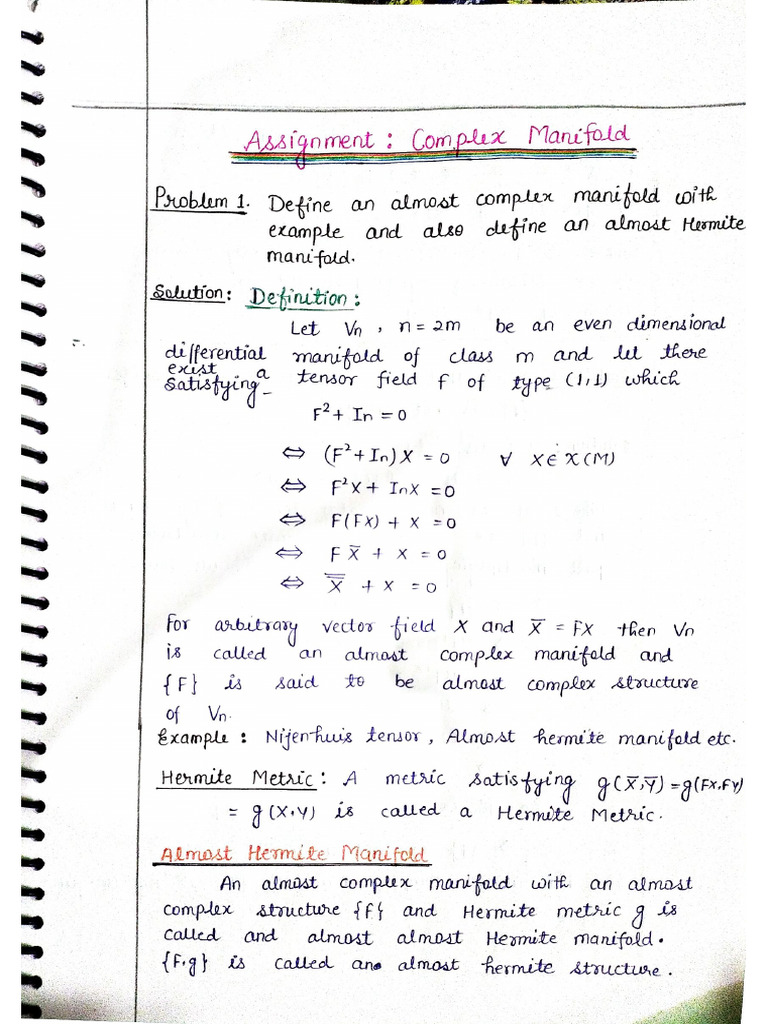 Assignment : Complex Manifold
Problem 1. Define an almost complex manifold with
example and also define an almost Hermite
manifold.
Solution : Definition :
Let Vn , n = 2m be an even dimensional
differential manifold of class m and let there
exist a tensor field f of type (1,1) which
satisfying -
F² + In = 0
⇔ (F² + In) X = 0 ∀ X ∈ X(M)
⇔ F²X + InX = 0
⇔ F(FX) + X = 0
⇔ F X̄ + X = 0
⇔ X̿ + X = 0
For arbitrary vector field X and X̄ = FX then Vn
is called an almost complex manifold and
{F} is said to be almost complex structure
of Vn.
Example : Nijenhuis tensor, Almost hermite manifold etc.
Hermite Metric : A metric satisfying g(X̄,Ȳ) = g(FX,FY)
= g(X,Y) is called a Hermite Metric.
Almost Hermite Manifold
An almost complex manifold with an almost
complex structure {F} and Hermite metric g is
called and almost almost Hermite manifold.
{F,g} is called an almost hermite structure.